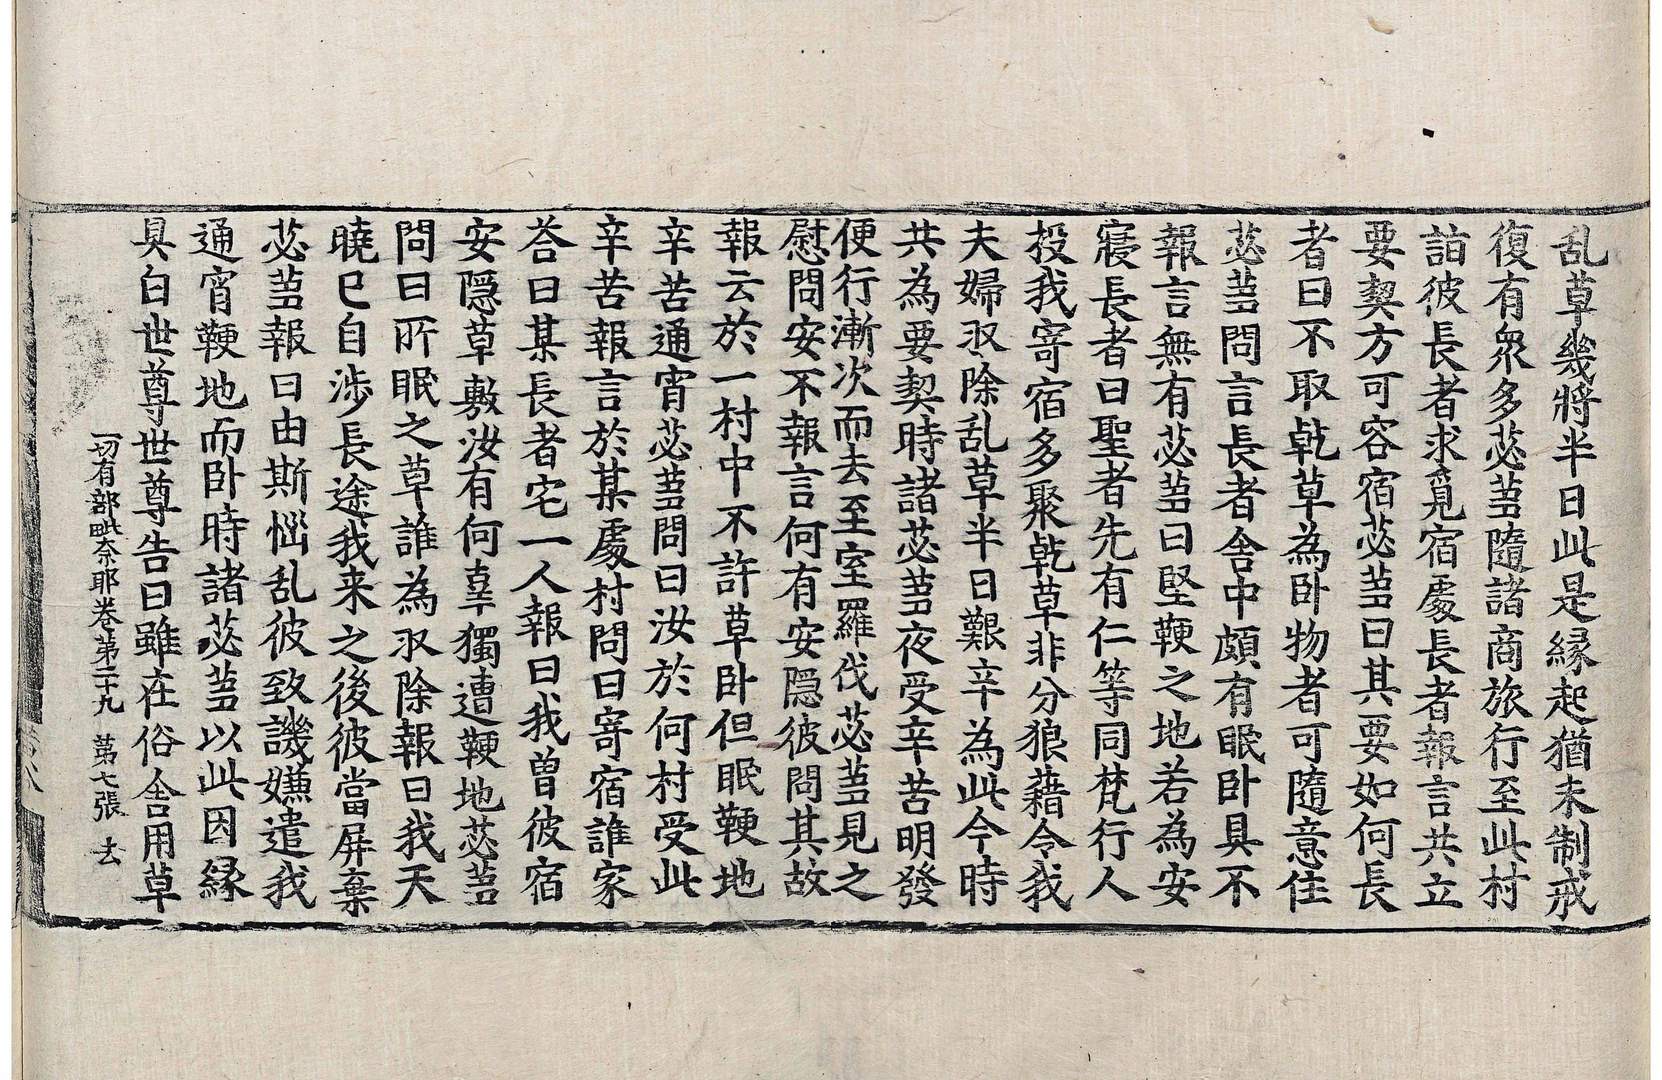 乱草幾將半日此是縁起猶未制戒
復有衆多苾蒭隨諸商旅行至此村
詣彼長者求覓宿處長者報言共立
要契方可容宿苾蒭曰其要如何長
者曰不取乹草為卧物者可隨意住
苾蒭問言長者舍中頗有眠卧具不
報言無有苾蒭曰堅鞕之地若為安
寢長者曰聖者先有仁等同梵行人
投我寄宿多聚乹草非分狼藉令我
夫婦収除乱草半日艱辛為此今時
共為要契時諸苾蒭夜受辛苦明發
便行漸次而去至室羅伐苾蒭見之
慰問安不報言何有安隱彼問其故
報云於一村中不許草卧但眠鞕地
辛苦通宵苾蒭問曰汝於何村受此
辛苦報言於某處村問曰寄宿誰家
荅曰某長者宅一人報曰我曽彼宿
安隱草敷汝有何辜獨遭鞕地苾蒭
問曰所眠之草誰為収除報曰我天
曉已自涉長途我来之後彼當屏棄
苾蒭報曰由斯惱乱彼致譏嫌遣我
通宵鞕地而卧時諸苾蒭以此因縁
具白世尊世尊告曰雖在俗舍用草
一切有部毗奈耶卷第二十九 第七張 去